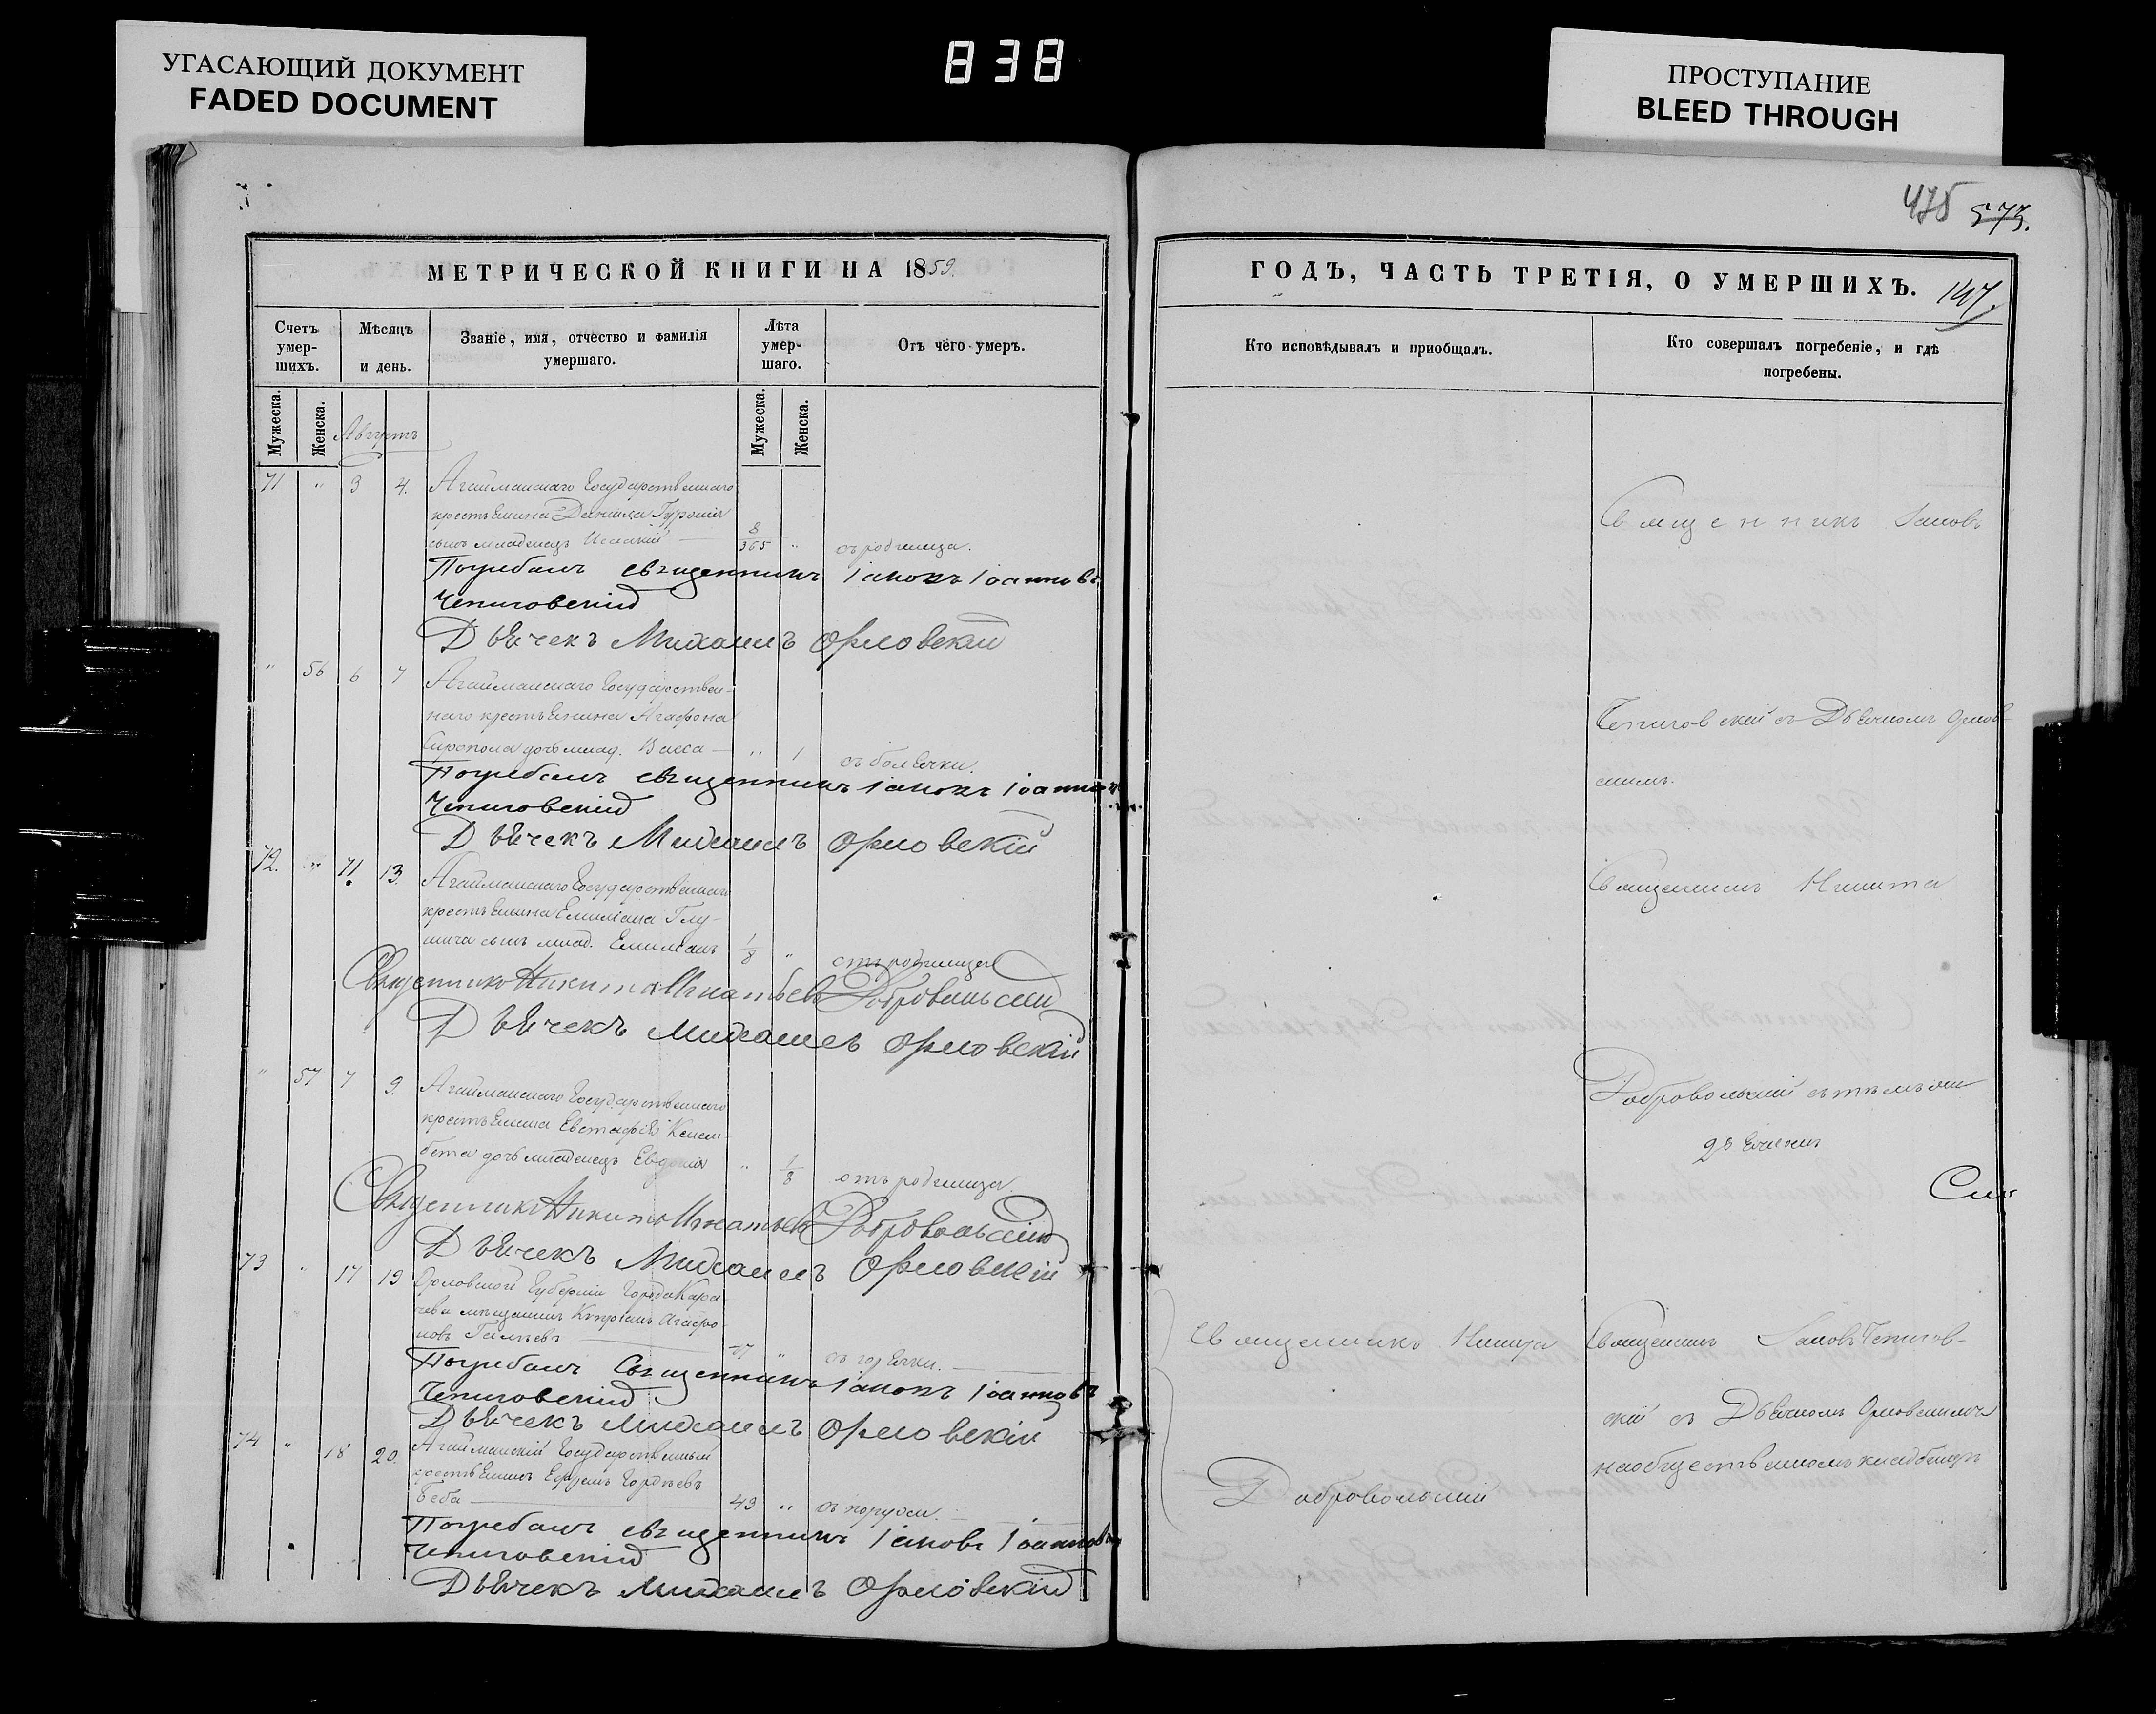 УГАСАЮЩИЙ ДОКУМЕНТ
FADED DOCUMENT
838
ПРОСТУПАНИЕ
BLEED THROUGH
475 575.
МЕТРИЧЕСКОЙ КНИГИ НА 1859.
Счетъ умер-шихъ.
Мѣсяцъ и день.
Званіе, имя, отчество и фамилія умершаго.
Лѣта умер-шаго.
Отъ чего умеръ.
Мужеска.
Женска.
Августъ
Мужеска.
Женска.
71 " 3 4. Агайманскаго Государственнаго
крестьянина Даніила
сынъ младенецъ 8/365 " отъ родимца.
Погребалъ священникъ Іаковъ Іоанновъ
Чепиговскій
Дьячекъ Михаилъ Орловскій
" 56 6 7 Агайманскаго Государствен-
наго крестьянина Агафона
дочь млад. Васса " 1 отъ болячки.
Погребалъ священникъ Іаковъ Іоанновъ
Чепиговскій
Дьячекъ Михаилъ Орловскій
72. " 11. 13. Агайманскаго Государственнаго
крестьянина Емиліана Глу-
сынъ млад. Емиліанъ 1/8 " отъ родимца
Священникъ Никита Игнатьевъ Добровольскій
Дьячекъ Михаилъ Орловскій
" 57 7 9. Агайманскаго Государственнаго
крестьянина Евстафія
дочь младенецъ Евдокія " 1/8 отъ родимца.
Священникъ Никита Игнатьевъ Добровольскій
Дьячекъ Михаилъ Орловскій
73 " 17 19 Орловской Губерніи Города Кара-
чева мещанинъ Кипріанъ Агафо-
новъ " отъ горячки.
Погребалъ Священникъ Іаковъ Іоанновъ
Чепиговскій
Дьячекъ Михаилъ Орловскій
74 " 18 20. Агайманскій Государственный
крестьянинъ Ефремъ Гордѣевъ
Беба 49 "
Погребалъ священникъ Іаковъ Іоанновъ
Чепиговскій
Дьячекъ Михаилъ Орловскій
ГОДЪ, ЧАСТЬ ТРЕТІЯ, О УМЕРШИХЪ. 147.
Кто исповѣдывалъ и приобщалъ.
Кто совершалъ погребеніе, и гдѣ погребены.
Священникъ Іаковъ
Чепиговскій съ Дьячкомъ Орлов-
скимъ.
Священникъ Никита
Добровольскій съ тѣмъ же
дьячкомъ
Священникъ Никита
Добровольскій
Священникъ Іаковъ Чепигов-
скій съ Дьячкомъ Орловскимъ
на общественномъ кладбищѣ